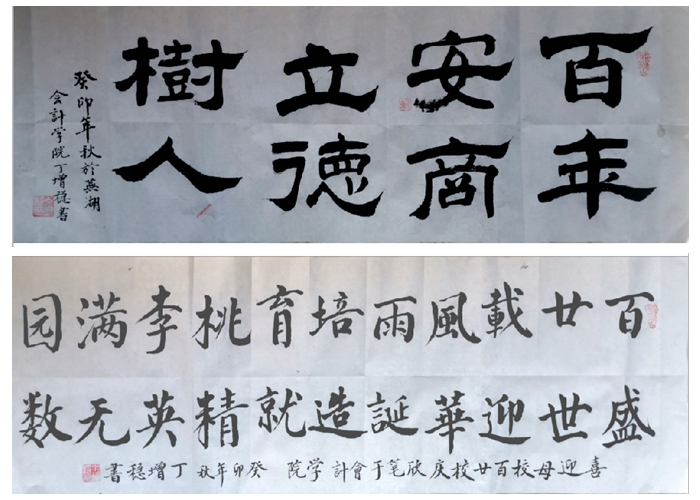 百年
安商
立德
樹人
癸卯年秋於蕪湖
会計学院丁增稳書
百廿載風雨培育桃李满园
盛世迎華誕造就精英无数
喜迎母校百廿校庆欣笔于會計学院 癸卯年秋 丁增稳書